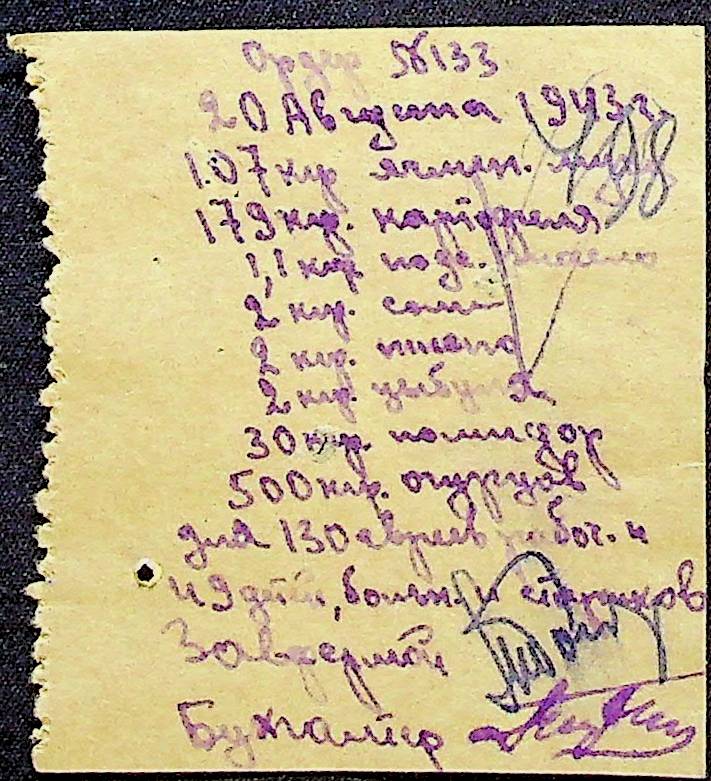 Ордер №133
20 Августа 1943 г
107 кгр ячмен. муки
179 кгр. картофеля
1,1 кгр. подс. масло
2 кгр. соли
2 кгр. пшено
2 кгр. цыбуля
30 кгр. помидор
500 кгр. огурцов
для 130 евреев рабоч. и
49 детей, больн. и стариков
Зав
Бухгалтер
798